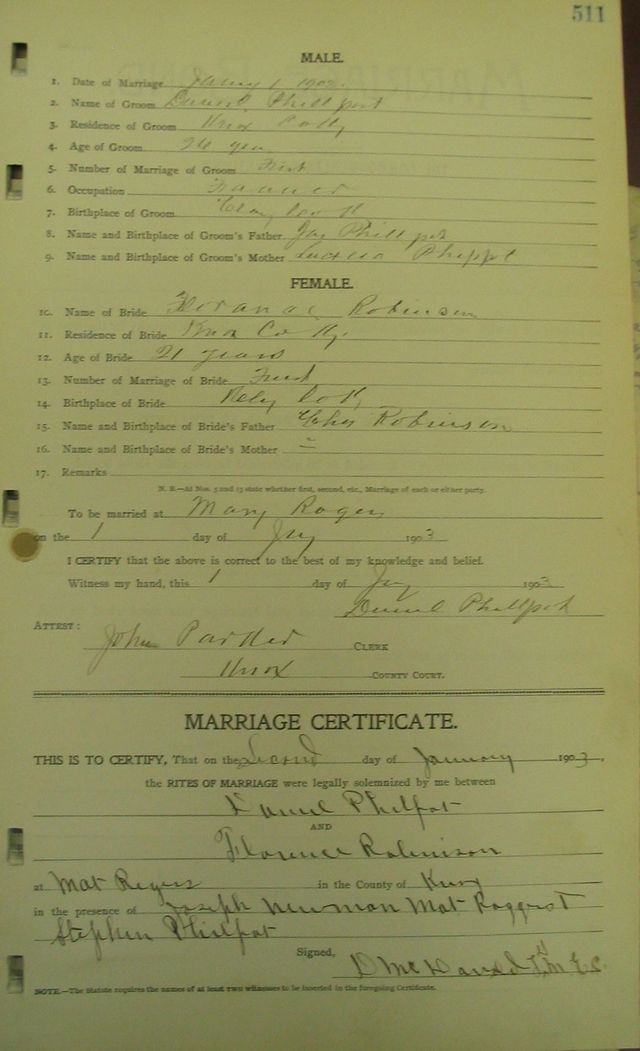 511
MALE.
1. Date of Marriage 1 1903.
2. Name of Groom Daniel Phillpot
3. Residence of Groom Knox Co Ky
4. Age of Groom
5. Number of Marriage of Groom First
6. Occupation Farmer
7. Birthplace of Groom Clay Co K
8. Name and Birthplace of Groom's Father Phillpot
9. Name and Birthplace of Groom's Mother
FEMALE.
10. Name of Bride Robinson
11. Residence of Bride Knox Co Ky.
12. Age of Bride 21 years
13. Number of Marriage of Bride First
14. Birthplace of Bride
15. Name and Birthplace of Bride's Father Chas Robinson
16. Name and Birthplace of Bride's Mother
17. Remarks
N. B.—At Nos. 5 and 13 state whether first, second, etc., Marriage of each or either party.
To be married at Mary Rogers
on the 1 day of 1903
I CERTIFY that the above is correct to the best of my knowledge and belief.
Witness my hand, this 1 day of 1903
Daniel Phillpot
ATTEST: John Parker CLERK
Knox COUNTY COURT.
MARRIAGE CERTIFICATE.
THIS IS TO CERTIFY, That on the Second day of January 1903.
the RITES OF MARRIAGE were legally solemnized by me between
Daniel Philpot
AND
Florence Robinson
at Mat Rogers in the County of Knox
in the presence of Joseph Newman Mat
Stephen Philpot
Signed,
NOTE.—The Statute requires the names of at least TWO witnesses to be inserted in the foregoing Certificate.